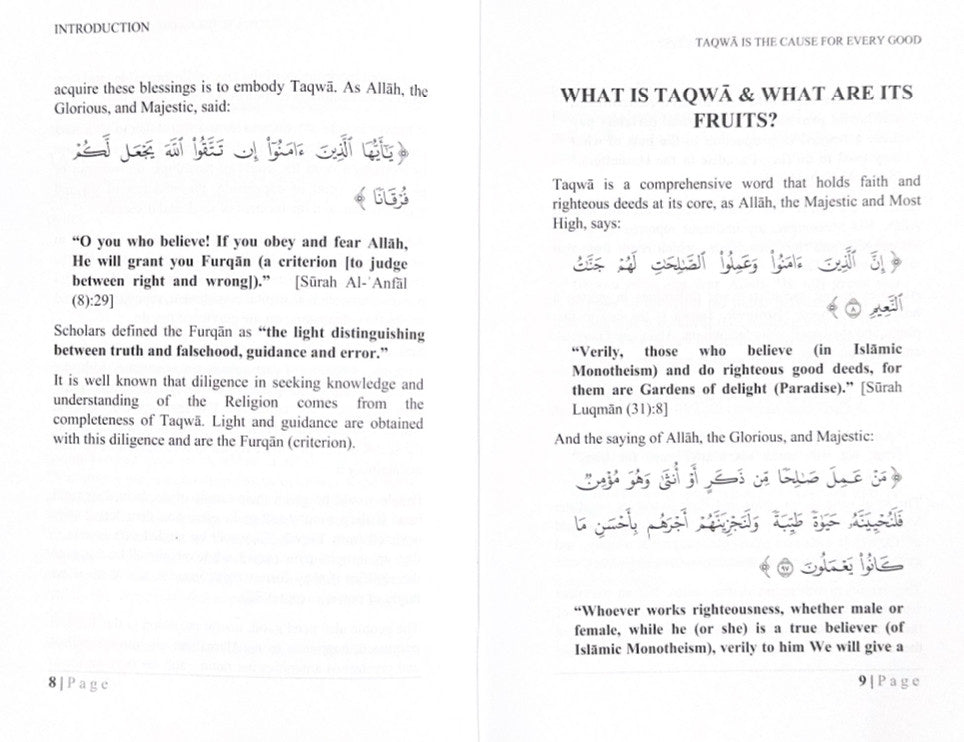 INTRODUCTION
acquire these blessings is to embody Taqwā. As Allāh, the
Glorious, and Majestic, said:
﴿ يَـٰٓأَيُّهَا ٱلَّذِينَ ءَامَنُوٓا۟ إِن تَتَّقُوا۟ ٱللَّهَ يَجْعَل لَّكُمْ
فُرْقَانًا ﴾
“O you who believe! If you obey and fear Allāh,
He will grant you Furqān (a criterion [to judge
between right and wrong]).” [Sūrah Al-ʾAnfāl
(8):29]
Scholars defined the Furqān as “the light distinguishing
between truth and falsehood, guidance and error.”
It is well known that diligence in seeking knowledge and
understanding of the Religion comes from the
completeness of Taqwā. Light and guidance are obtained
with this diligence and are the Furqān (criterion).
8 | Page
TAQWĀ IS THE CAUSE FOR EVERY GOOD
WHAT IS TAQWĀ & WHAT ARE ITS
FRUITS?
Taqwā is a comprehensive word that holds faith and
righteous deeds at its core, as Allāh, the Majestic and Most
High, says:
﴿ إِنَّ ٱلَّذِينَ ءَامَنُوا۟ وَعَمِلُوا۟ ٱلصَّـٰلِحَـٰتِ لَهُمْ جَنَّـٰتُ
ٱلنَّعِيمِ ٨ ﴾
“Verily, those who believe (in Islāmic
Monotheism) and do righteous good deeds, for
them are Gardens of delight (Paradise).” [Sūrah
Luqmān (31):8]
And the saying of Allāh, the Glorious, and Majestic:
﴿ مَنْ عَمِلَ صَـٰلِحًا مِّن ذَكَرٍ أَوْ أُنثَىٰ وَهُوَ مُؤْمِنٌ
فَلَنُحْيِيَنَّهُۥ حَيَوٰةً طَيِّبَةً وَلَنَجْزِيَنَّهُمْ أَجْرَهُم بِأَحْسَنِ مَا
كَانُوا۟ يَعْمَلُونَ ٩٧ ﴾
“Whoever works righteousness, whether male or
female, while he (or she) is a true believer (of
Islāmic Monotheism), verily to him We will give a
9 | Page